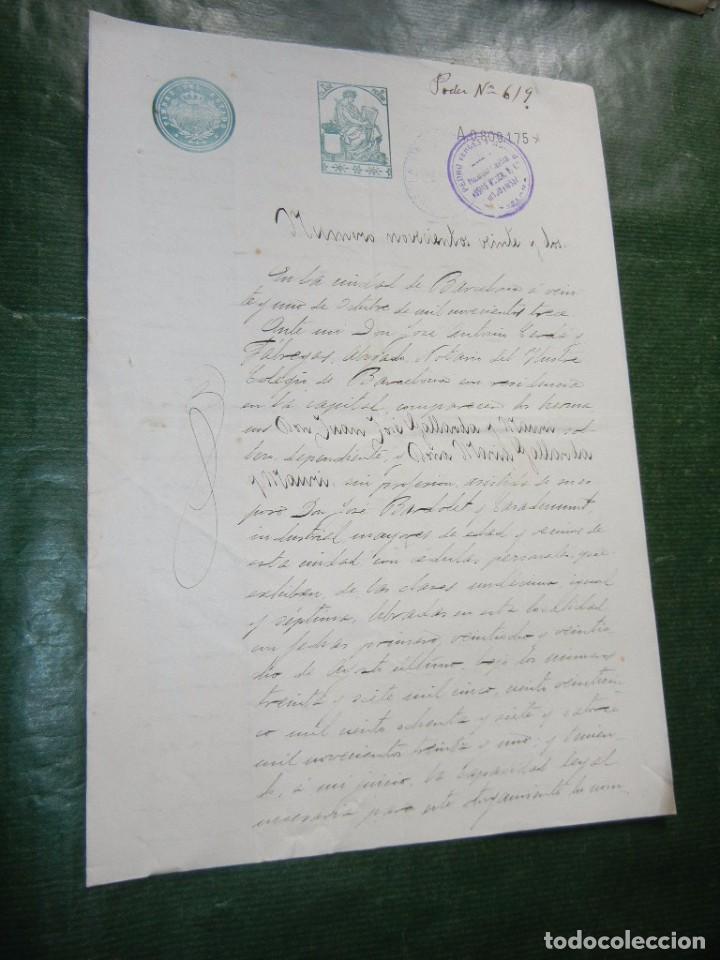 Poder Nº 619
A.0.809.175
PEDRO
Número novecientos veinte y dos.
En la ciudad de Barcelona á vein
te y uno de Octubre de mil novecientos trece
Ante mi Don José Antonio Cerdá y
Fábregas, Abogado, Notario del Ilustre
Colegio de Barcelona con residencia
en la capital, comparecen los herma
nos Don Juan José Vallhonrada y Maurin sol
tero, dependiente, y Doña María
y Maurin, sin profesión, asistida de su es
poso Don José Bardolet y
industrial mayores de edad y vecinos de
esta ciudad con cédulas personales que
exhiben, de las clases undécima, igual
y séptima, libradas en esta localidad
en fechas primero, veintiocho y veintio
cho de Agosto último, bajo los números
treinta y siete mil cinco, ciento veinticin
co mil ciento ochenta y siete y catorce
mil novecientos treinta y uno; y tenien
do, á mi juicio, la capacidad legal
necesaria para este otorgamiento de nom
todocoleccion
todocoleccion.net